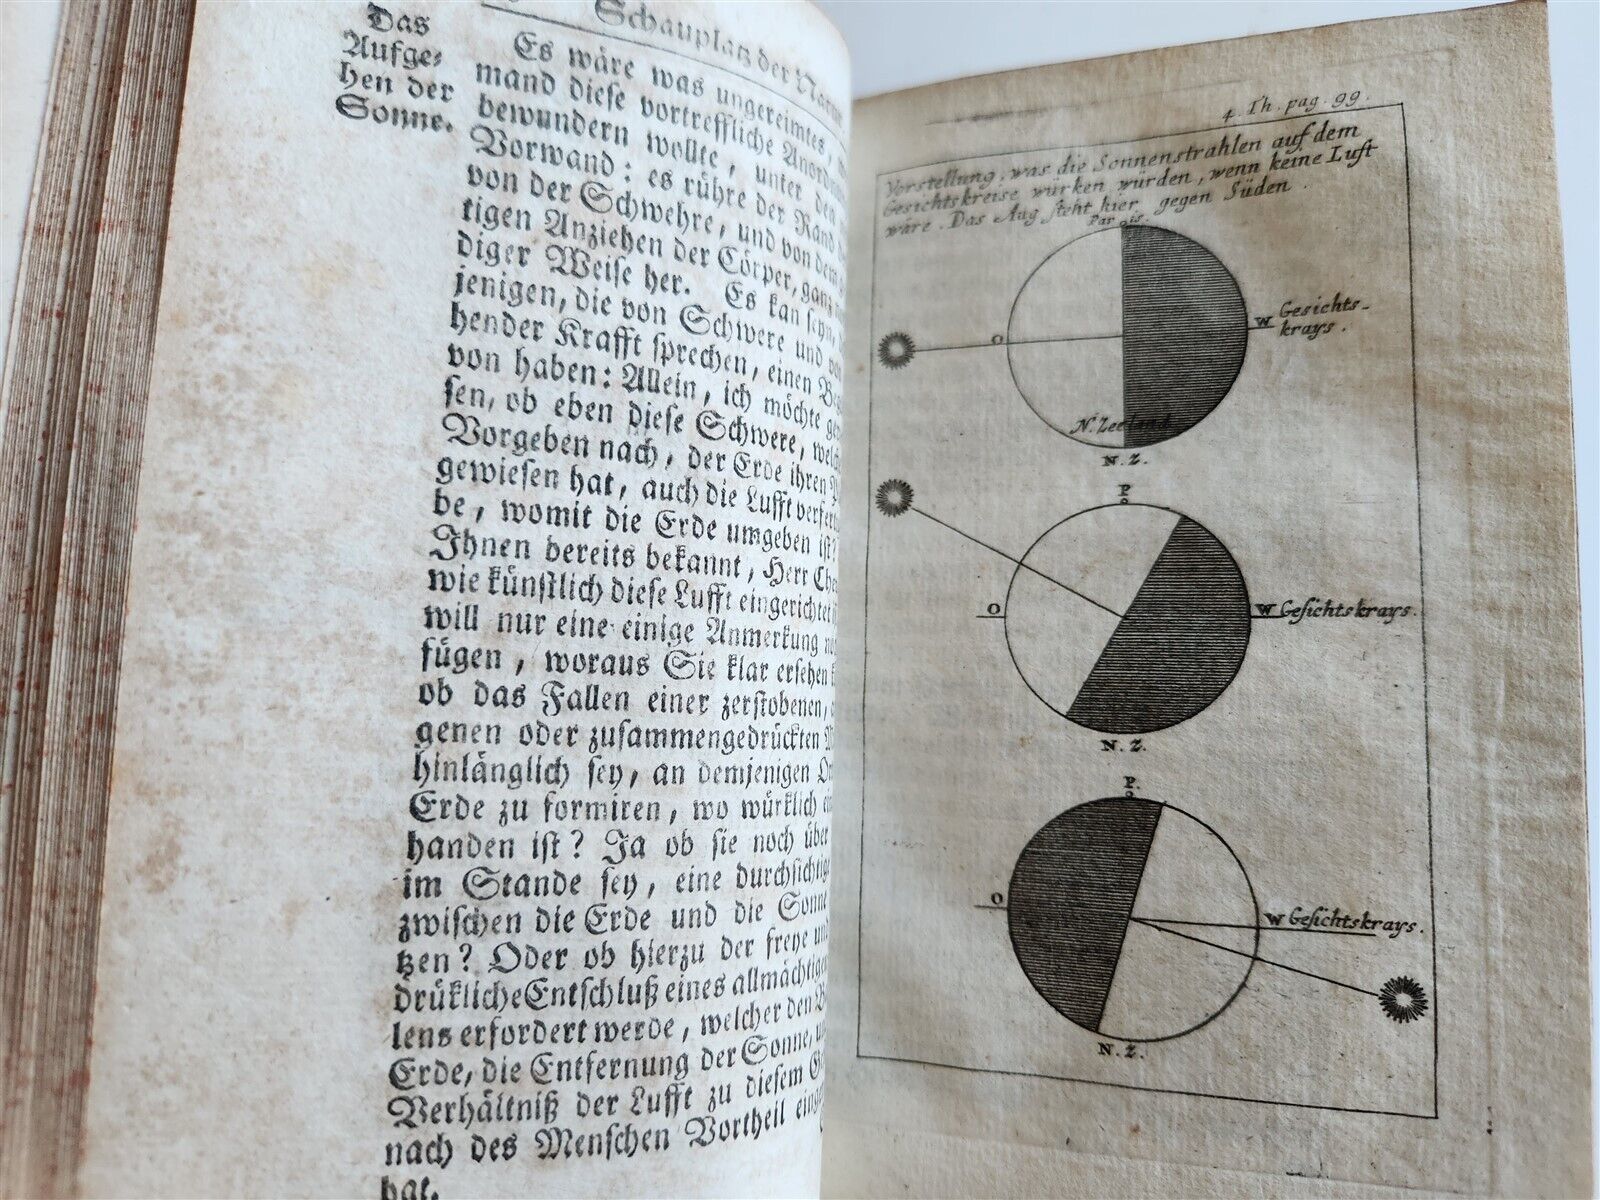 Schauplatz der Natur
Das
Aufge-
hen der
Sonne.
Es wäre was ungereimtes,
mand diese vortreffliche
bewundern wollte, unter den
Vorwand: es rühre der Rand
von der Schwehre, und von dem
tigen Anziehen der Cörper,
diger Weise her. Es kan seyn,
jenigen, die von Schwere und
hender Krafft sprechen, einen
von haben: Allein, ich möchte
sen, ob eben diese Schwere,
Vorgeben nach, der Erde ihren
gewiesen hat, auch die Lufft
be, womit die Erde umgeben ist?
Ihnen bereits bekannt, Herr
wie künstlich diese Lufft eingerichtet
will nur eine einige Anmerkung
fügen, woraus Sie klar ersehen
ob das Fallen einer zerstobenen,
genen oder zusammengedrückten
hinlänglich sey, an demjenigen
Erde zu formiren, wo würklich
handen ist? Ja ob sie noch über
im Stande sey, eine durchsichtige
zwischen die Erde und die Sonne
tzen? Oder ob hierzu der freye
drükliche Entschluß eines allmächtigen
lens erfordert werde, welcher den
Erde, die Entfernung der Sonne,
Verhältniß der Lufft zu diesem
nach des Menschen Vortheil
hat.
4. Th. pag. 99.
Vorstellung, was die Sonnenstrahlen auf dem
Gesichtskreise würken würden, wenn keine Luft
wäre. Das Aug steht hier gegen Süden.
Paris.
O
W Gesichts-
krays.
N. Zeeland
N. Z.
P.
O
W Gesichtskrays.
N. Z.
P.
O
W Gesichtskrays.
N. Z.